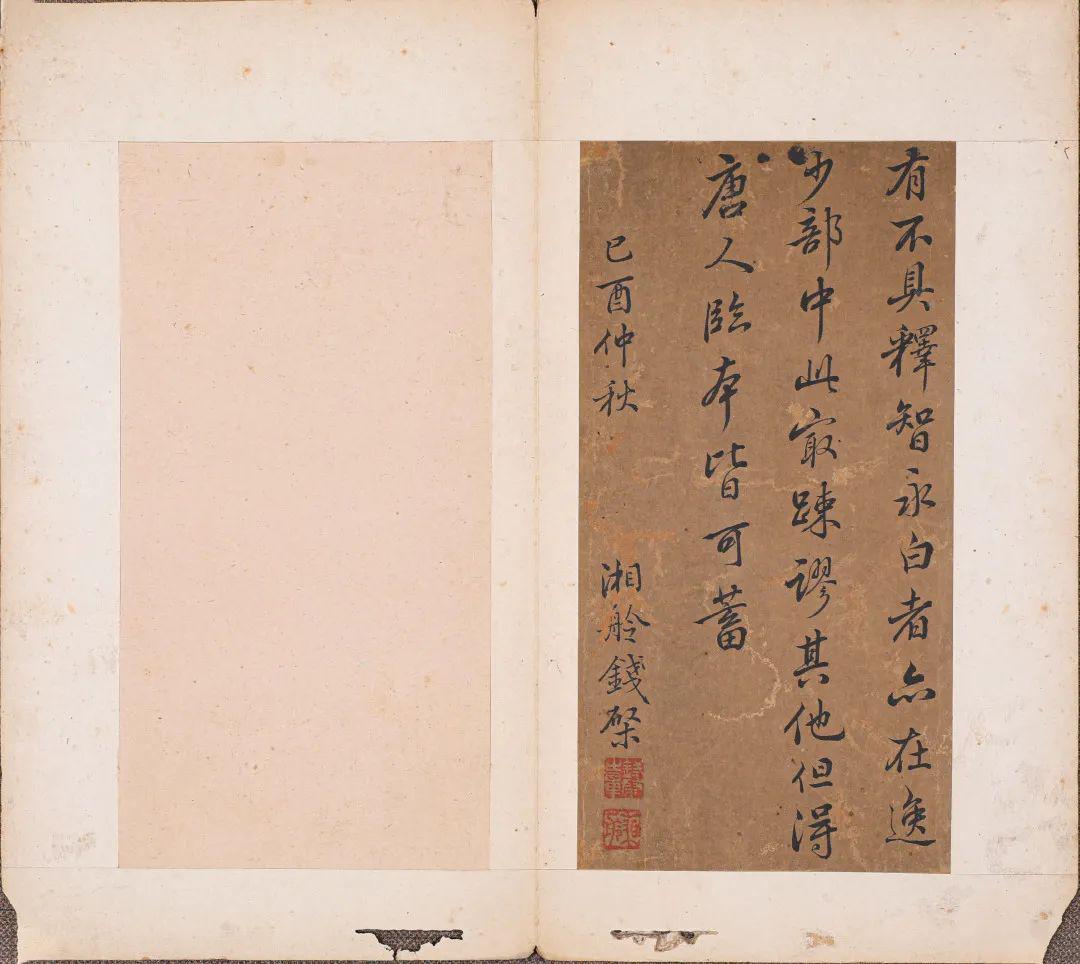 有不具釋智永白者亦在逸
少部中此寂疎謬其他但得
唐人臨本皆可蓄
己酉仲秋
湘舲錢棨